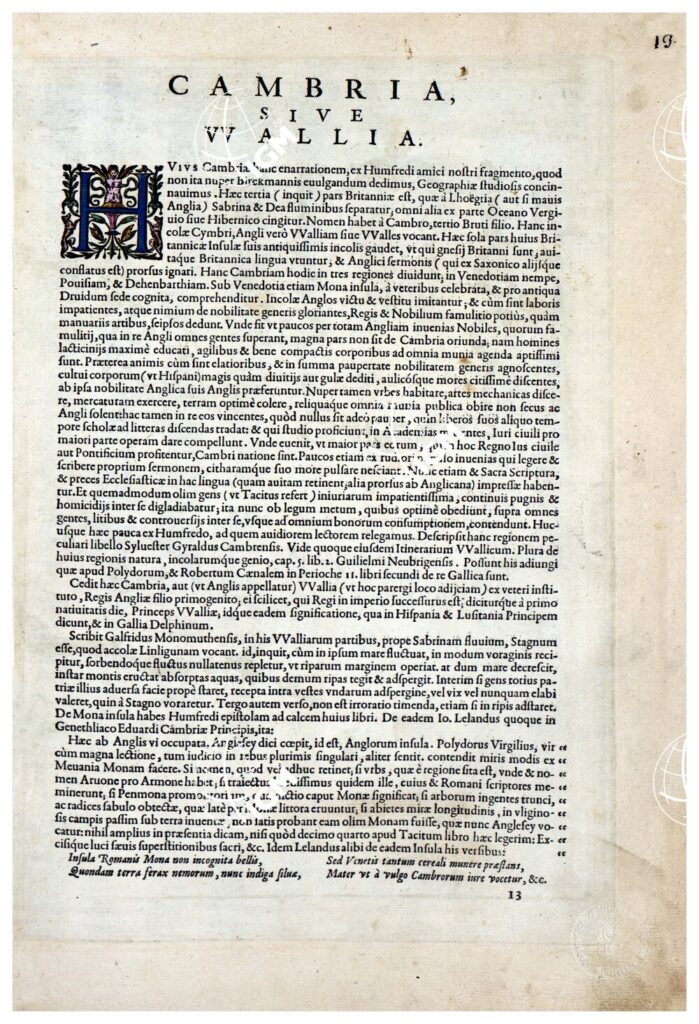 19
CAMBRIA,
SIVE
VVALLIA.
HVIVS Cambriæ hanc enarrationem, ex Humfredi amici nostri fragmento, quod
non ita nuper Birckmannis euulgandum dedimus, Geographiæ studiosis concin-
nauimus. Hæc tertia (inquit) pars Britanniæ est, quæ à Lhoëgria (aut si mauis
Anglia) Sabrina & Dea fluminibus separatur, omni alia ex parte Oceano Vergi-
uio siue Hibernico cingitur. Nomen habet à Cambro, tertio Bruti filio. Hanc in-
colæ Cymbri, Angli verò VValliam siue VValles vocant. Hæc sola pars huius Bri-
tannicæ Insulæ suis antiquissimis incolis gaudet, vt qui gnesij Britanni sunt; aui-
taque Britannica lingua vtuntur; & Anglici sermonis (qui ex Saxonico alijsque
conflatus est) prorsus ignari. Hanc Cambriam hodie in tres regiones diuidunt; in Venedotiam nempe,
Pouisiam, & Dehenbarthiam. Sub Venedotia etiam Mona insula, à veteribus celebrata, & pro antiqua
Druidum sede cognita, comprehenditur. Incolæ Anglos victu & vestitu imitantur; & cùm sint laboris
impatientes, atque nimium de nobilitate generis gloriantes, Regis & Nobilium famulitio potiùs, quàm
manuariis artibus, seipsos dedunt. Vnde fit vt paucos per totam Angliam inuenias Nobiles, quorum fa-
mulitij, qua in re Angli omnes gentes superant, magna pars non sit de Cambria oriunda; nam homines
lacticinijs maximè educati, agilibus & bene compactis corporibus ad omnia munia agenda aptissimi
sunt. Præterea animis cùm sint elatioribus, & in summa paupertate nobilitatem generis agnoscentes,
cultui corporum (vt Hispani) magis quàm diuitijs aut gulæ dediti, aulicósque mores citissimè discentes,
ab ipsa nobilitate Anglica suis Anglis præferuntur. Nuper tamen vrbes habitare, artes mechanicas disce-
re, mercaturam exercere, terram optimè colere, reliquaque omnia munia publica obire non secus ac
Angli solent: hac tamen in re eos vincentes, quòd nullus sit adeò pauper, quin liberos suos aliquo tem-
pore scholæ ad litteras discendas tradat: & qui studio proficiunt, in Academias mittentes, Iuri ciuili pro
maiori parte operam dare compellunt. Vnde euenit, vt maior pars eorum, qui in hoc Regno Ius ciuile
aut Pontificium profitentur, Cambri natione sint. Paucos etiam ex rudiori populo inuenias qui legere &
scribere proprium sermonem, citharamque suo more pulsare nesciant. Nunc etiam & Sacra Scriptura,
& preces Ecclesiasticæ in hac lingua (quam auitam retinent, alia prorsus ab Anglicana) impressæ haben-
tur. Et quemadmodum olim gens (vt Tacitus refert) iniuriarum impatientissima, continuis pugnis &
homicidijs inter se digladiabatur; ita nunc ob legum metum, quibus optimè obediunt, supra omnes
gentes, litibus & controuersijs inter se, vsque ad omnium bonorum consumptionem, contendunt. Huc-
usque hæc pauca ex Humfredo, ad quem auidiorem lectorem relegamus. Descripsit hanc regionem pe-
culiari libello Syluester Gyraldus Cambrensis. Vide quoque eiusdem Itinerarium VVallicum. Plura de
huius regionis natura, incolarumque genio, cap. 5. lib. 2. Guilielmi Neubrigensis. Possunt his adiungi
quæ apud Polydorum, & Robertum Cænalem in Perioche 11. libri secundi de re Gallica sunt.
Cedit hæc Cambria, aut (vt Anglis appellitant) VVallia (vt hoc parergi loco adijciam) ex veteri insti-
tuto, Regis Angliæ filio primogenito; ei scilicet, qui Regi in imperio successurus est; diciturque à primo
natiuitatis die, Princeps VValliæ, idque eadem significatione, qua in Hispania & Lusitania Principem
dicunt, & in Gallia Delphinum.
Scribit Galfridus Monomuthensis, in his VValliarum partibus, prope Sabrinam fluuium, Stagnum
esse, quod accolæ Linligunnam vocant. id, inquit, cùm in ipsum mare fluctuat, in modum voraginis reci-
pitur, sorbendoque fluctus nullatenus repletur, vt riparum marginem operiat. at dum mare decrescit,
instar montis eructat absorptas aquas, quibus demum ripas tegit & adspergit. Interim si gens totius pa-
triæ illius aduersa facie propè staret, recepta intra vestes vndarum adspergine, vel vix vel nunquam elabi
valeret, quin à Stagno voraretur. Tergo autem verso, non est irroratio timenda, etiam si in ripis adstaret.
De Mona insula habes Humfredi epistolam ad calcem huius libri. De eadem Io. Lelandus quoque in
Genethliaco Eduardi Cambriæ Principis, ita:
Hæc ab Anglis vi occupata, Anglesey dici cœpit, id est, Anglorum insula. Polydorus Virgilius, vir “
cùm magna lectione, tum iudicio in rebus plurimis singulari, aliter sentit. contendit miris modis ex “
Meuania Monam facere. Si nomen, quod vel adhuc retinet; si vrbs, quæ è regione sita est, vnde & no- “
men Aruone pro Armone habet; si traiectus breuissimus quidem ille, cuius & Romani scriptores me- “
minerunt; si Penmona promontorium, dictio caput Monæ significat; si arborum ingentes trunci, “
ac radices sabulo obtectæ, quæ latè per Monæ littora eruuntur; si abietes miræ longitudinis, in vligino- “
sis campis passim sub terra inuentæ, non satis probant eam olim Monam fuisse, quæ nunc Anglesey vo- “
catur: nihil amplius in præsentia dicam, nisi quòd decimo quarto apud Tacitum libro hæc legerim: Ex- “
cisique luci sæuis superstitionibus sacri, &c. Idem Lelandus alibi de eadem Insula his versibus: “
Insula Romanis Mona non incognita bellis, Sed Venetis tantum cereali munere præstans,
Quondam terra ferax nemorum, nunc indiga siluæ, Mater vt à vulgo Cambrorum iure vocetur, &c.
13
GM